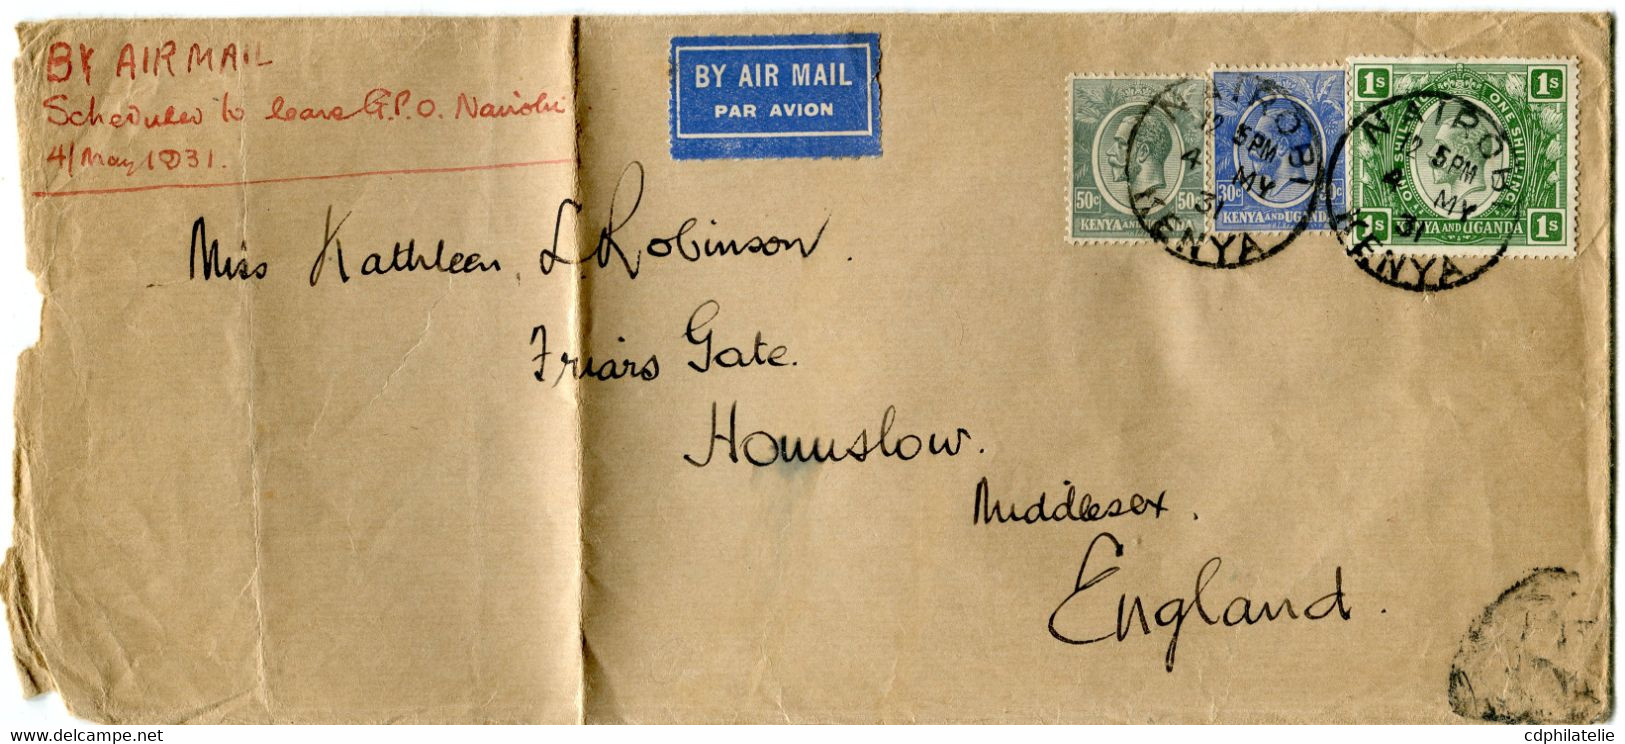 BY AIR MAIL
Scheduled to leave G.P.O. Nairobi
4/May 1931.
BY AIR MAIL
PAR AVION
50c 50c
KENYA AND UGANDA
30c
KENYA AND UGANDA
1s 1s
ONE SHILLING
1s 1s
KENYA AND UGANDA
NAIROBI
12 5PM
4 MY
31
KENYA
NAIROBI
12 5PM
4 MY
31
KENYA
Miss Kathleen L. Robinson.
Friars Gate.
Hounslow.
Middlesex.
England.
cdphilatelie